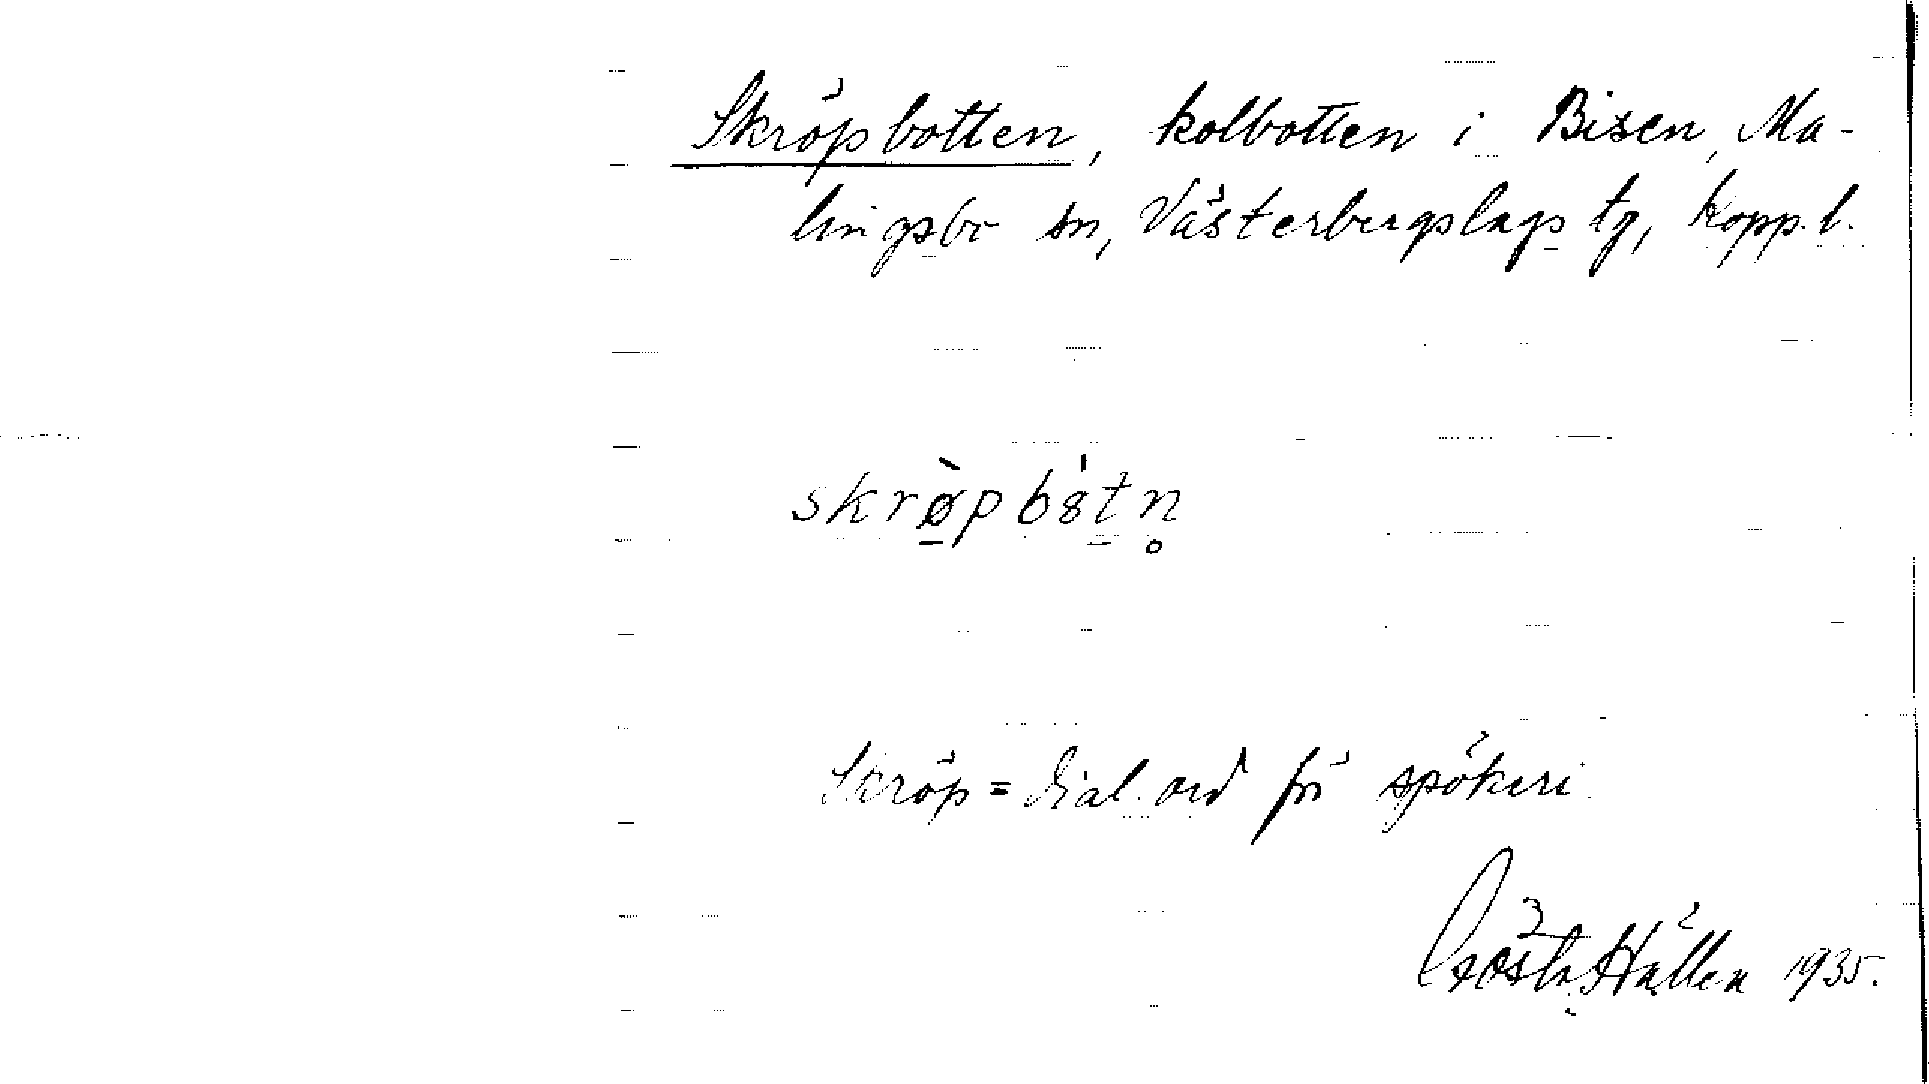 Skröpbotten, kolbotten i Bisen, Ma-
lingsbo sn, Västerbergslags tg, Kopp. l.
skrø̀pbȣ́tn̥
Skröp = dial. ord för spökeri
Gösta Hällen 1935.